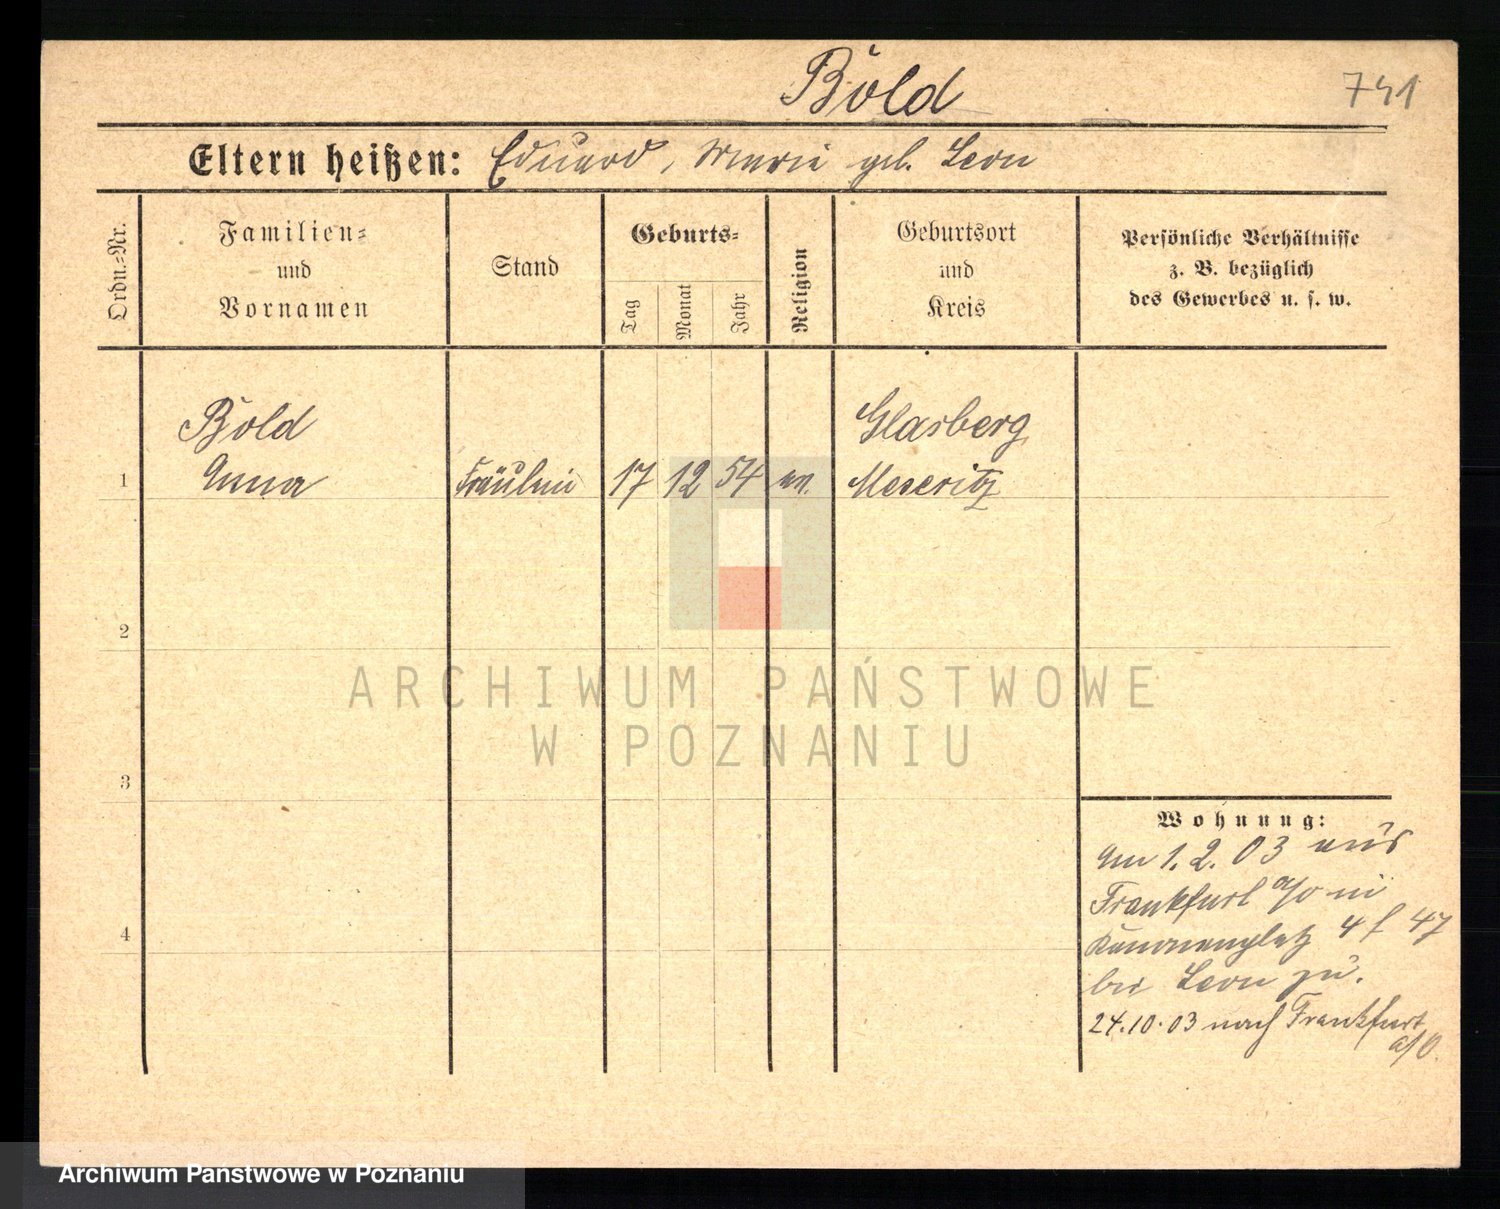 Böld
741
Eltern heißen: Eduard, Marie geb. Leon
Ordn.-Nr.
Familien-
und
Vornamen
Stand
Geburts-
Tag
Monat
Jahr
Religion
Geburtsort
und
Kreis
Persönliche Verhältnisse
z. B. bezüglich
des Gewerbes u. s. w.
1
Böld
Anna
Fräulein
17
12
54
ev.
Glasberg
Meseritz
2
3
4
Wohnung:
Am 1.2.03 aus
Frankfurt a/o in
Kanonenplatz 4 f 47
bei Leon zu.
24.10.03 nach Frankfurt
a/O.
ARCHIWUM PAŃSTWOWE
W POZNANIU
Archiwum Państwowe w Poznaniu